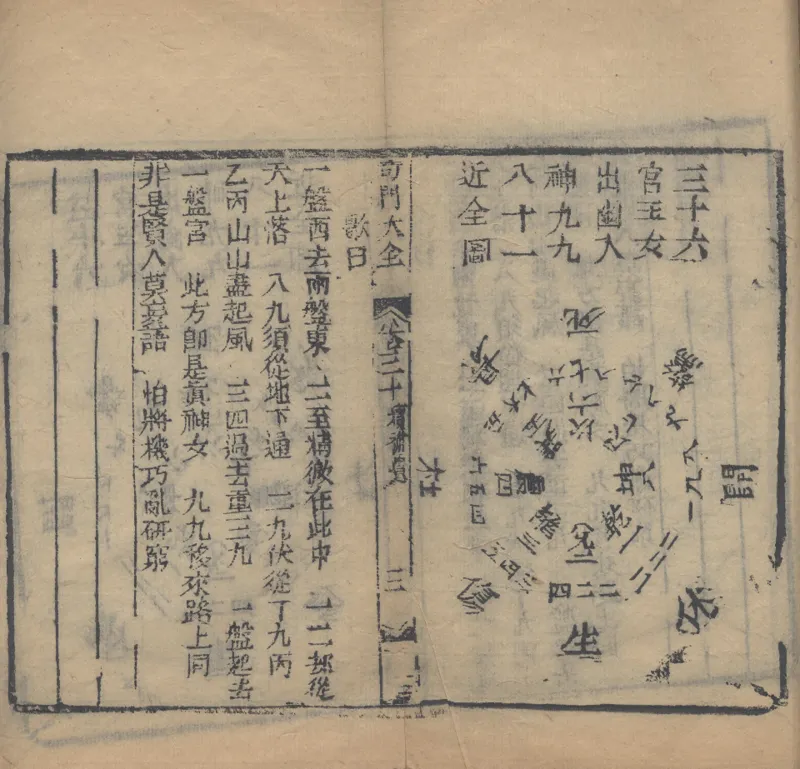 三十六
宮玉女
出幽入
神九九
八十一
近全圖
死
驚
開
杜
坎
坤
震四
巽
三
二
傷
生
休
奇門大全
卷三十
三
歌曰
一盤西去兩盤東 二至精微在此中 一二都從
天上落 八九須從地下通 二九伏從丁九丙
乙丙山山盡起風 三四過去重三九 一盤起去
一盤宮 此方卽是眞神女 九九移來路上同
非是賢人莫妄語 怕將機巧亂研窮